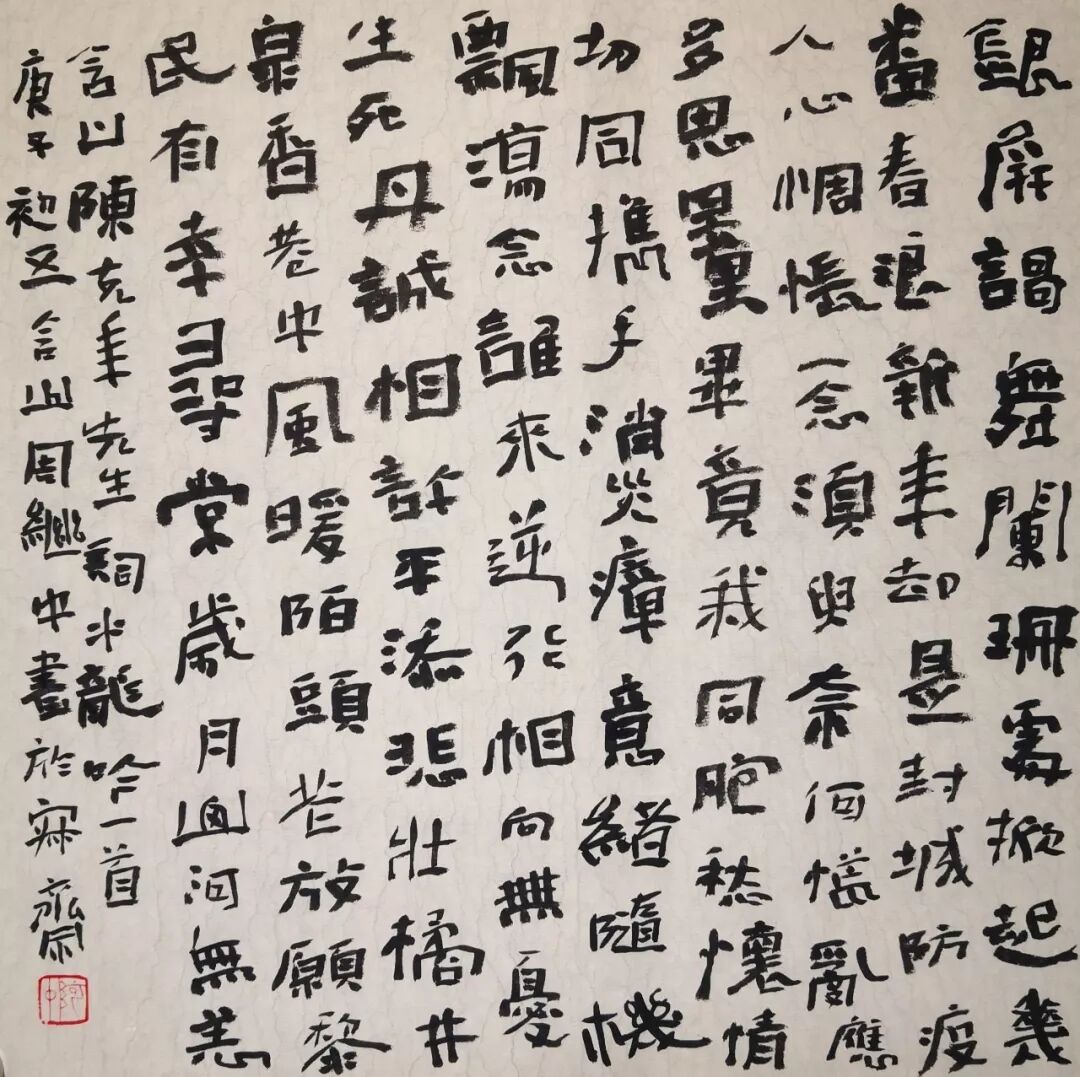 銀屏謌舞闌珊處掀起幾
番春浪新年却是封城防疫
人心惆悵一念須臾奈何慌亂應
多思量畢竟我同胞愁懷情
切同攜手消災瘴意緒隨機
飄蕩念誰來逆行相向無憂
生死丹誠相許平添悲壯橘井
泉香巷中風暖陌頭花放願黎
民有幸尋常歲月山河無恙
言山陳克年先生詞水龍吟一首
庚子初五言山周繼中書於寐齋